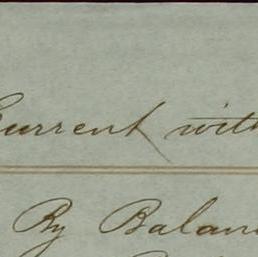 Current with
By Balan